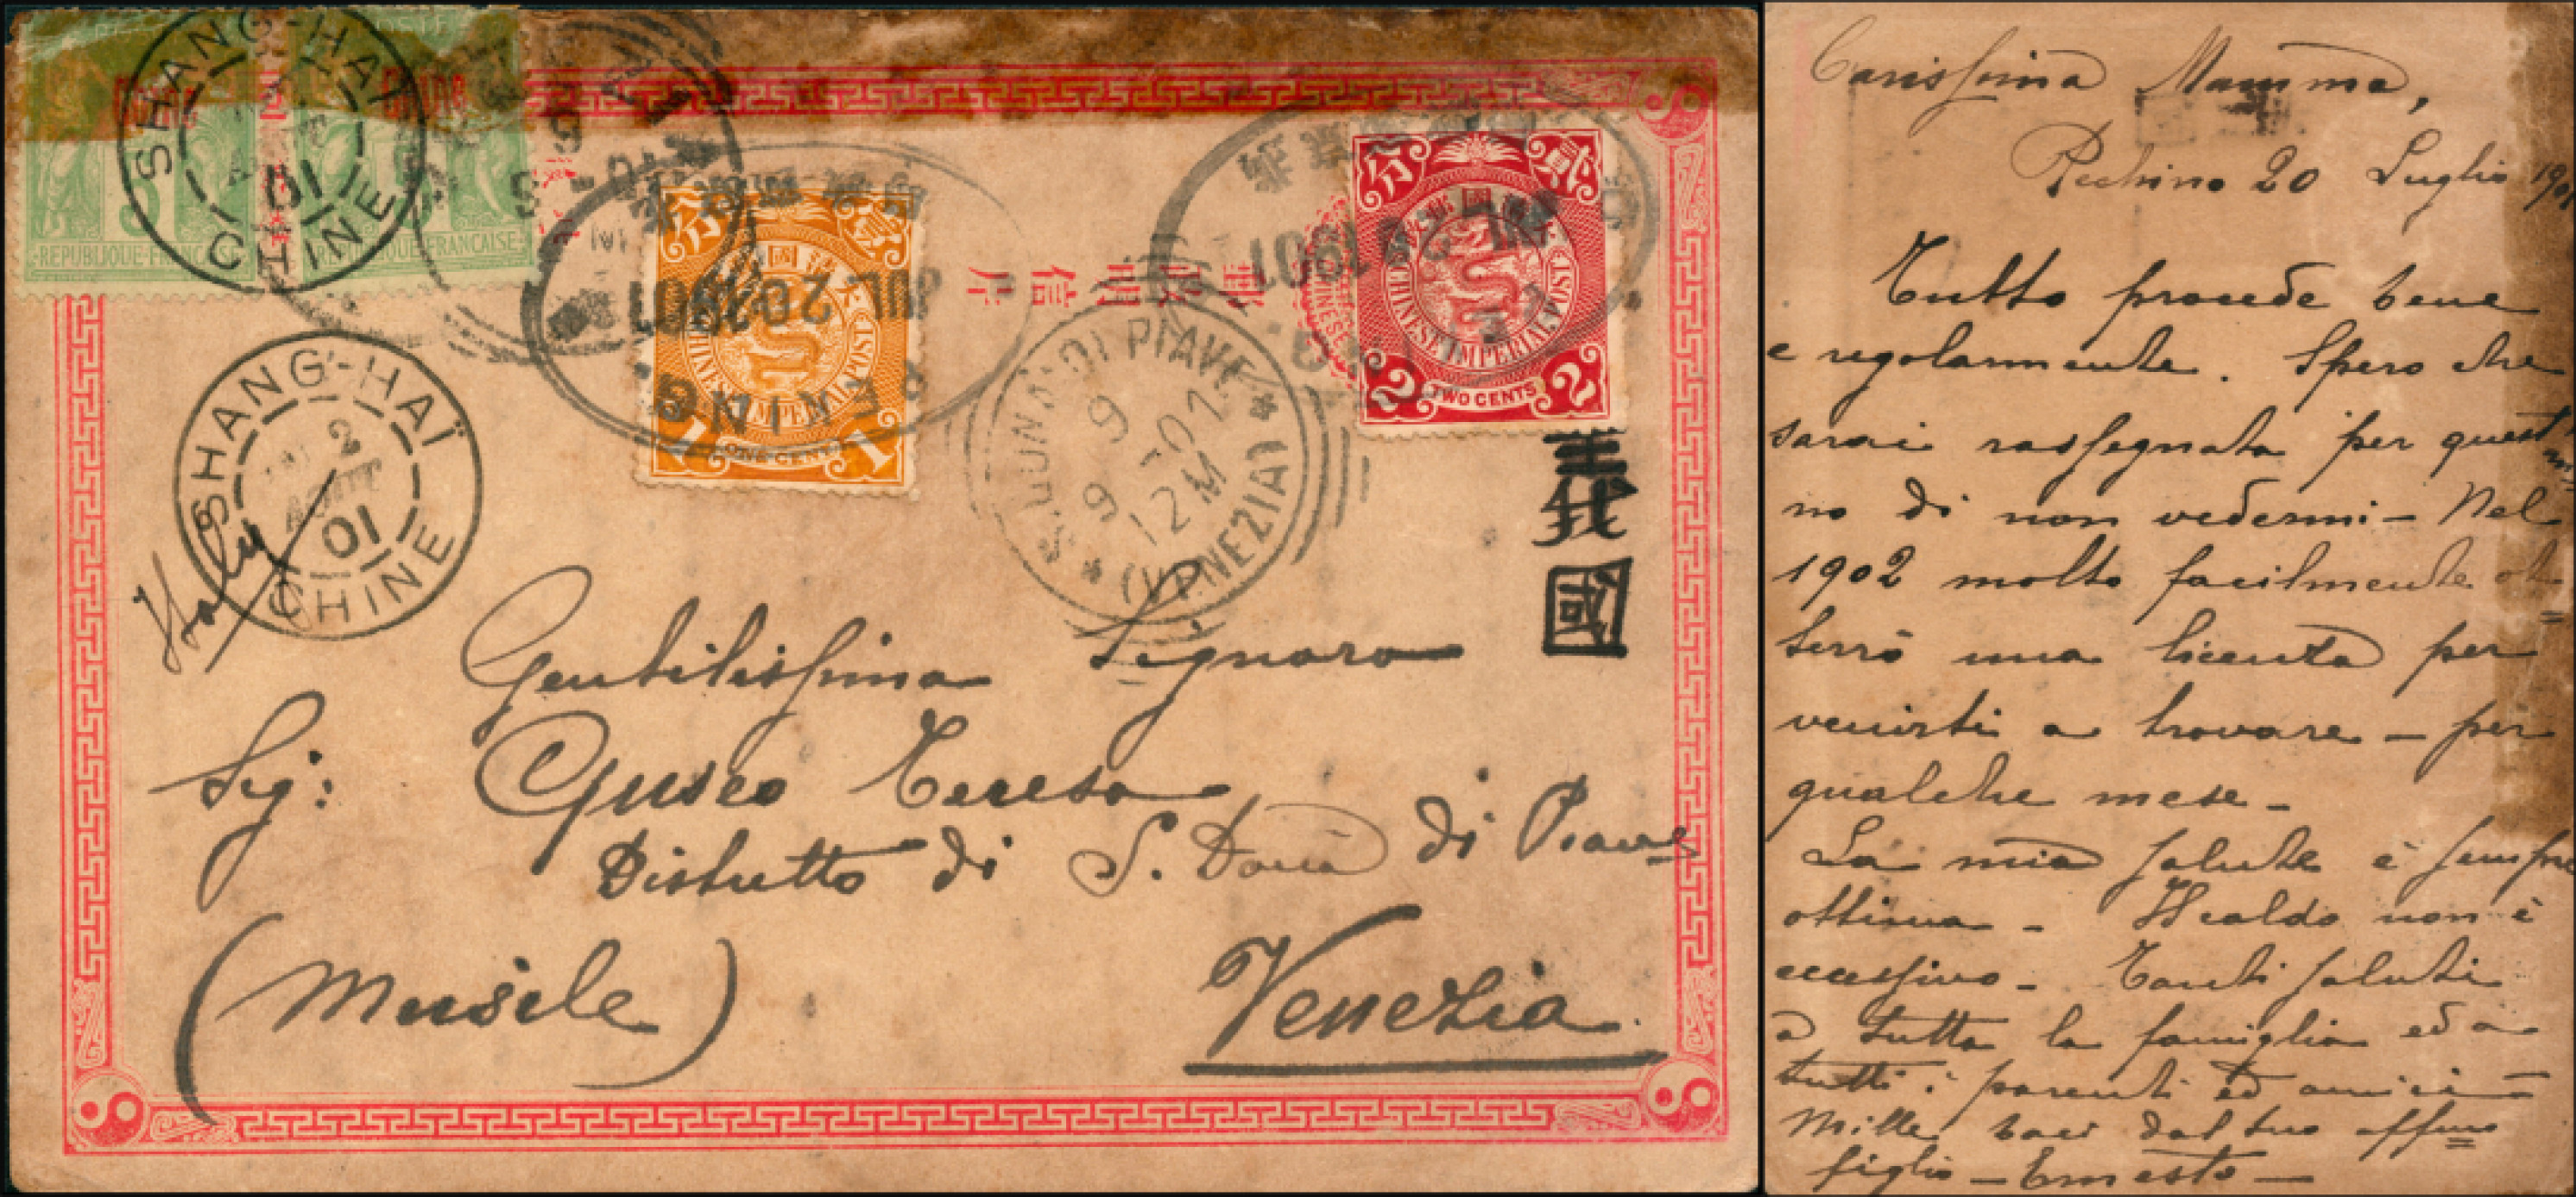 SHANG-HAÏ
CHINE
01
Chine
Chine
5
REPUBLIQUE FRANÇAISE
SHANG-HAÏ
2
AOUT
01
CHINE
Italy
JUL 20 1901
PEKING
CHINESE IMPERIAL POST
1 ONE CENT 1
分
CHINESE IMPERIAL POST
2 TWO CENTS 2
分 貳
1901
DI PIAVE
9 9 - 01
12 M
(VENEZIA)
義
國
Gentilissima Signora
Sig: Guseo Teresa
Distretto di S. Donà di Piave
(Musile) Venezia
Carissima Mamma,
Pechino 20 Luglio 1901
Tutto procede bene
e regolarmente. Spero che
sarai rassegnata per quest'an=
no di non vedermi - Nel
1902 molto facilmente ot=
terrò una licenza per
venirti a trovare - per
qualche mese -
La mia salute è sempre
ottima - Il caldo non è
eccessivo - Tanti saluti
a tutta la famiglia ed a
tutti i parenti ed amici -
Mille baci dal tuo affmo
figlio - Ernesto -